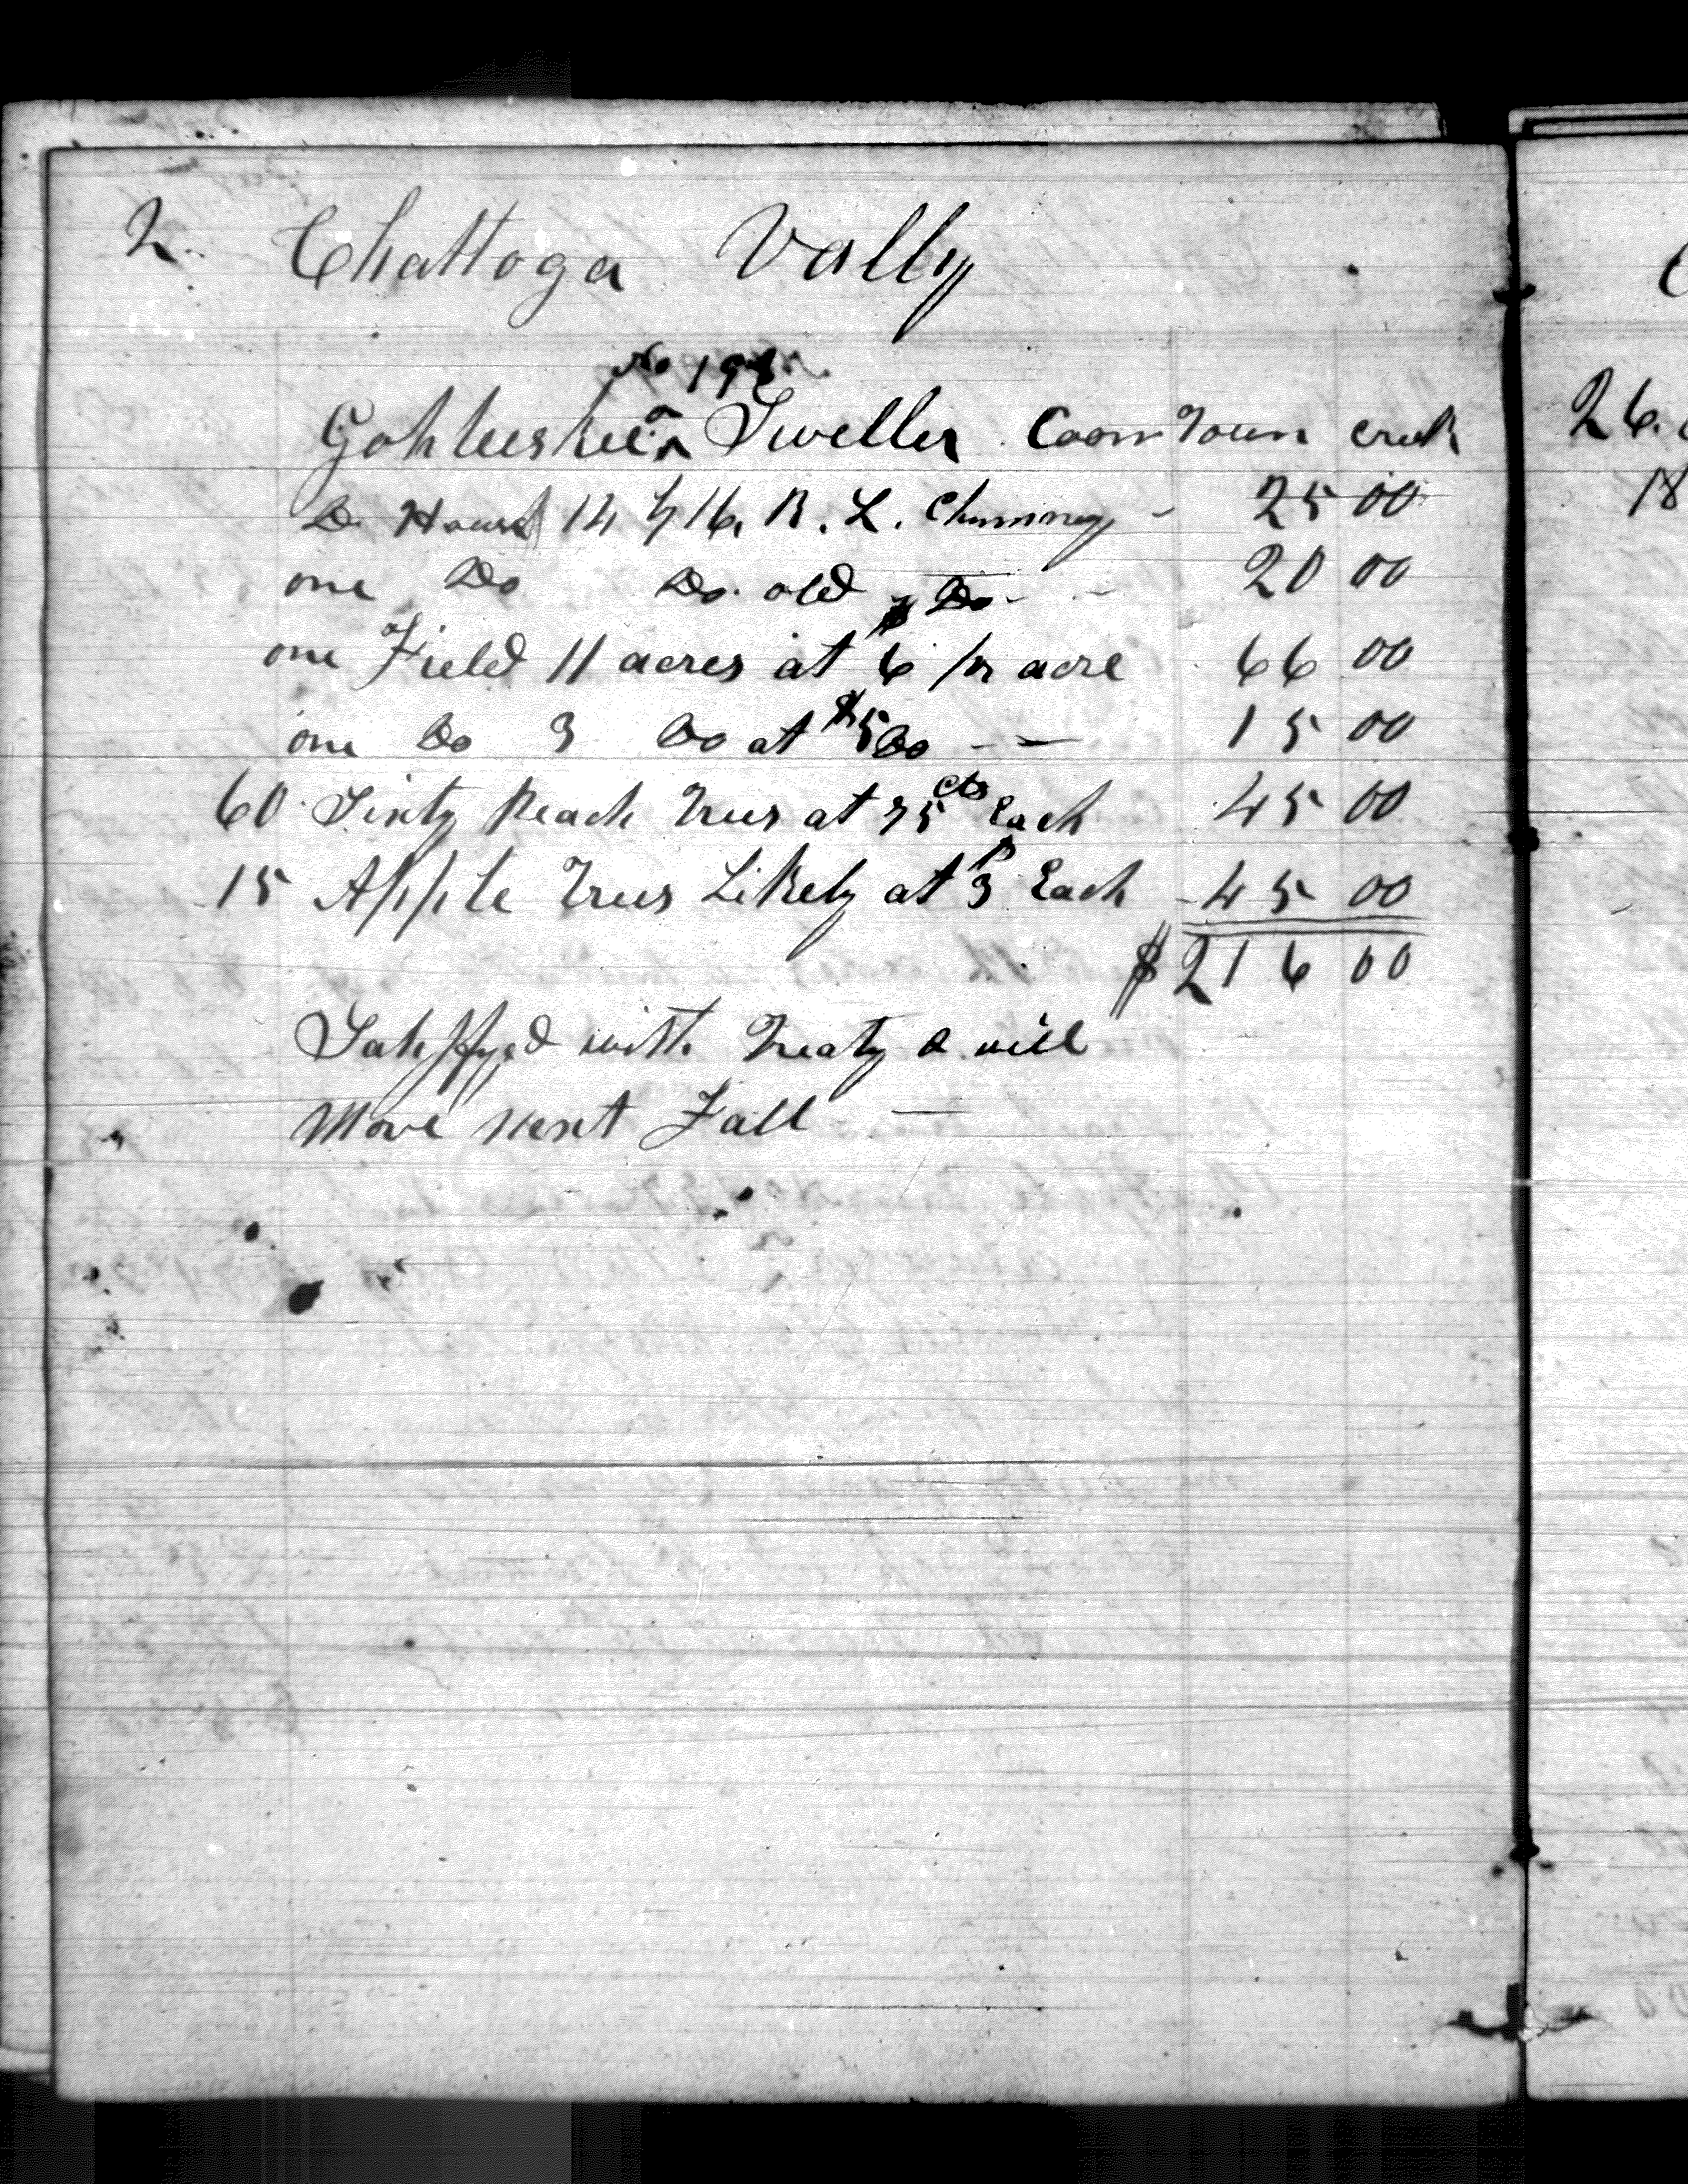 2. Chattoga Vally
No 198.
or Sweller Coon Town creek
D. House 14 by 16, R. L. Chimney - 25 00
one Do Do. old Do - - 20 00
one Field 11 acres at $6 pr acre 66 00
one Do 3 Do at $5 Do - — 15 00
60 Sixty Peach Trees at 75 cts Each 45 00
15 Apple Trees Likely at $3 Each 45 00
$216 00
Satisfyed with Treaty & will
Move next Fall —
26.
18